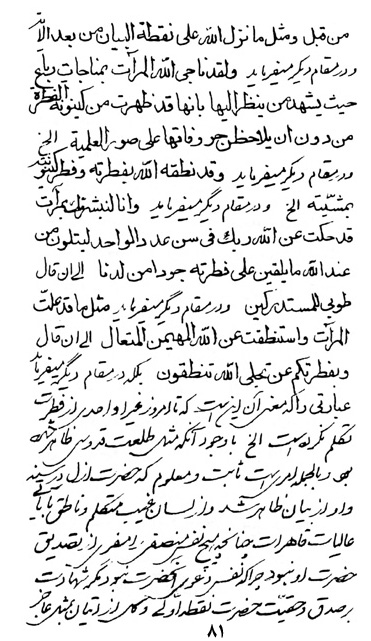 من قبل ومثل ما نزل الله على نقطة البيان من بعد الآ
ودر مقام دیگر میفرماید ولقد ناجى الله المرآت بمناجات بلغ
حيث يشهد من ينظر اليها بانها قد ظهرت من كينونة الفطرة
من دون ان يلاحظ حروفاتها على صور العلمية الخ
ودر مقام دیگر میفرماید وقد نطقه الله بفطرته وفطر كينونيته
بمشيته الخ ودر مقام دیگر میفرماید وانا لنشهدن بمرآت
قد حكت عن الله ربك فى سن عدد الواحد ليتلون من
عند الله ما يلقين على فطرته جودا من لدنا الى ان قال
طوبى للمستدركين ودر مقام دیگر میفرماید مثل ما قد علت
المرآت واستنطقت عن الله المهيمن المتعال الى ان قال
وبفطرتكم عن تجلى الله تنطقون بلكه در مقام دیگر میفرماید
عبارتى را كه معنى آن اينست كه تا امروز غير او احدى از فطرت
تكلم نكرده است الخ با وجود آنكه مثل طلعت قدوس ظاهر شده
بود وبالجمله امریست ثابت و معلوم كه حضرت ازل در سينه
واو از بيان ظاهر شد واز لسان غيب متكلم و ناطق بآيات
عاليات قاهرات چنانچه هيچ نفس منصفى را مفرى از تصديق
حضرت او نبود چرا كه نفس دعوى آنحضرت نبود مگر شهادت
بر صدق و حقيت حضرت نقطه اولى و كل از اتيان بمثل عاجز
٨١